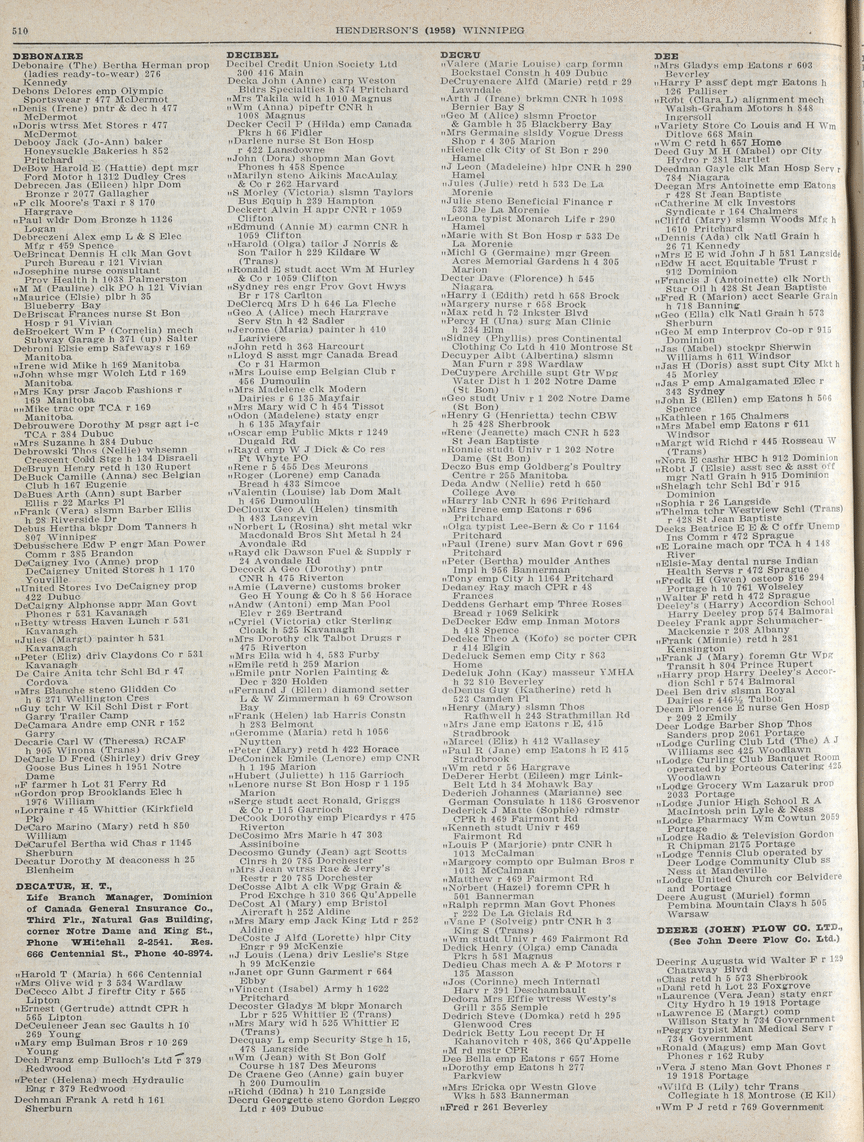 510
HENDERSON'S (1958) WINNIPEG
DEBONAIRE
Debonaire (The) Bertha Herman prop
(ladies ready-to-wear) 276
Kennedy
Debons Delores emp Olympic
Sportswear r 477 McDermot
„Denis (Irene) pntr & dec h 477
McDermot
„Doris wtrss Met Stores r 477
McDermot
Debooy Jack (Jo-Ann) baker
Honeysuckle Bakeries h 852
Pritchard
DeBow Harold E (Hattie) dept mgr
Ford Motor h 1312 Dudley Cres
Debrecen Jas (Eileen) hlpr Dom
Bronze r 2077 Gallagher
„P clk Moore's Taxi r 8 170
Hargrave
„Paul wldr Dom Bronze h 1126
Logan
Debreczeni Alex emp L & S Elec
Mfg r 459 Spence
DeBrincat Dennis H clk Man Govt
Purch Bureau r 121 Vivian
„Josephine nurse consultant
Prov Health h 1038 Palmerston
„M M (Pauline) clk PO h 121 Vivian
„Maurice (Elsie) plbr h 35
Blueberry Bay
DeBriscat Frances nurse St Bon
Hosp r 91 Vivian
deBroekert Wm P (Cornelia) mech
Subway Garage h 371 (up) Salter
Debroni Elsie emp Safeways r 169
Manitoba
„Irene wid Mike h 169 Manitoba
„John whse mgr Welch Ltd r 169
Manitoba
„Mrs Kay prsr Jacob Fashions r
169 Manitoba
„„Mike trac opr TCA r 169
Manitoba
Debrouwere Dorothy M psgr agt 1-c
TCA r 384 Dubuc
„Mrs Suzanne h 384 Dubuc
Debrowski Thos (Nellie) whsemn
Crescent Cold Stge h 134 Disraeli
DeBruyn Henry retd h 130 Rupert
DeBuck Camille (Anna) sec Belgian
Club h 167 Eugenie
DeBues Arth (Ann) supt Barber
Ellis r 22 Marks Pl
„Frank (Vera) slsmn Barber Ellis
h 28 Riverside Dr
Debus Hertha bkpr Dom Tanners h
807 Winnipeg
Debusschere Edw P engr Man Power
Comm r 385 Brandon
DeCaigny Ivo (Anne) prop
DeCaigny United Stores h 1 170
Youville
„United Stores Ivo DeCaigny prop
422 Dubuc
DeCaigny Alphonse appr Man Govt
Phones r 531 Kavanagh
„Betty wtress Haven Lunch r 531
Kavanagh
„Jules (Margt) painter h 531
Kavanagh
„Peter (Eliz) driv Claydons Co r 531
Kavanagh
De Caire Anita tchr Schl Bd r 47
Cordova
„Mrs Blanche steno Glidden Co
h 6 271 Wellington Cres
„Guy tchr W Kil Schl Dist r Fort
Garry Trailer Camp
DeCamara Andre emp CNR r 152
Garry
Decarie Carl W (Theresa) RCAF
h 905 Winona (Trans)
DeCarle D Fred (Shirley) driv Grey
Goose Bus Lines h 1951 Notre
Dame
„F farmer h Lot 31 Ferry Rd
„Gordon prop Brooklands Elec h
1976 William
„Lorraine r 45 Whittier (Kirkfield
Pk)
DeCaro Marino (Mary) retd h 850
William
DeCarufel Bertha wid Chas r 1145
Sherburn
Decatur Dorothy M deaconess h 25
Blenheim
DECATUR, H. T.,
Life Branch Manager, Dominion
of Canada General Insurance Co.,
Third Flr., Natural Gas Building,
corner Notre Dame and King St.,
Phone WHitehall 2-2541. Res.
666 Centennial St., Phone 40-8974.
„Harold T (Maria) h 666 Centennial
„Mrs Olive wid r 3 534 Wardlaw
DeCecco Albt J fireftr City r 565
Lipton
„Ernest (Gertrude) attndt CPR h
565 Lipton
DeCeuleneer Jean sec Gaults h 10
269 Young
„Mary emp Bulman Bros r 10 269
Young
Dech Franz emp Bulloch's Ltd r 379
Redwood
„Peter (Helena) mech Hydraulic
Eng r 379 Redwood
Dechman Frank A retd h 161
Sherburn
DECIBEL
Decibel Credit Union Society Ltd
300 416 Main
Decka John (Anne) carp Weston
Bldrs Specialties h 874 Pritchard
„Mrs Takila wid h 1010 Magnus
„Wm (Anna) pipeftr CNR h
1008 Magnus
Decker Cecil P (Hilda) emp Canada
Pkrs h 66 Fidler
„Darlene nurse St Bon Hosp
r 422 Lansdowne
„John (Dora) shopmn Man Govt
Phones h 458 Spence
„Marilyn steno Aikins MacAulay
& Co r 262 Harvard
„S Morley (Victoria) slsmn Taylors
Bus Equip h 239 Hampton
Deckert Alvin H appr CNR r 1059
Clifton
„Edmund (Annie M) carmn CNR h
1059 Clifton
„Harold (Olga) tailor J Norris &
Son Tailor h 229 Kildare W
(Trans)
„Ronald E studt acct Wm M Hurley
& Co r 1059 Clifton
„Sydney res engr Prov Govt Hwys
Br r 178 Carlton
DeClercq Mrs D h 646 La Fleche
„Geo A (Alice) mech Hargrave
Serv Stn h 42 Sadler
„Jerome (Maria) painter h 410
Lariviere
„John retd h 363 Harcourt
„Lloyd S asst mgr Canada Bread
Co r 31 Harmon
„Mrs Louise emp Belgian Club r
456 Dumoulin
„Mrs Madelene clk Modern
Dairies r 6 135 Mayfair
„Mrs Mary wid C h 454 Tissot
„Odon (Madelene) staty engr
h 6 135 Mayfair
„Oscar emp Public Mkts r 1249
Dugald Rd
„Rayd emp W J Dick & Co res
Ft Whyte PO
„Rene r 5 455 Des Meurons
„Roger (Lorene) emp Canada
Bread h 433 Simcoe
„Valentin (Louise) lab Dom Malt
h 456 Dumoulin
DeCloux Geo A (Helen) tinsmith
h 483 Langevin
„Norbert L (Rosina) sht metal wkr
Macdonald Bros Sht Metal h 24
Avondale Rd
„Rayd clk Dawson Fuel & Supply r
24 Avondale Rd
Decock A Geo (Dorothy) pntr
CNR h 475 Riverton
„Amie (Laverne) customs broker
Geo H Young & Co h 8 56 Horace
„Andw (Antoni) emp Man Pool
Elev r 269 Bertrand
„Cyriel (Victoria) ctkr Sterling
Cloak h 525 Kavanagh
„Mrs Dorothy clk Talbot Drugs r
475 Riverton
„Mrs Ella wid h 4, 583 Furby
„Emile retd h 259 Marion
„Emile pntr Norlen Painting &
Dec r 320 Holden
„Fernand J (Ellen) diamond setter
L & W Zimmerman h 69 Crowson
Bay
„Frank (Helen) lab Harris Constn
h 283 Belmont
„Geromme (Maria) retd h 1056
Nuytten
„Peter (Mary) retd h 422 Horace
DeConinck Emile (Lenore) emp CNR
h 1 195 Marion
„Hubert (Juliette) h 115 Garrioch
„Lenore nurse St Bon Hosp r 1 195
Marion
„Serge studt acct Ronald, Griggs
& Co r 115 Garrioch
DeCook Dorothy emp Picardys r 475
Riverton
DeCosimo Mrs Marie h 47 303
Assiniboine
Decosmo Gundy (Jean) agt Scotts
Clnrs h 20 785 Dorchester
„Mrs Jean wtrss Rae & Jerry's
Restr r 20 785 Dorchester
DeCosse Albt A clk Wpg Grain &
Prod Exchge h 310 366 Qu'Appelle
DeCost Al (Mary) emp Bristol
Aircraft h 252 Aldine
„Mrs Mary emp Jack King Ltd r 252
Aldine
DeCoste J Alfd (Lorette) hlpr City
Engr r 99 McKenzie
„J Louis (Lena) driv Leslie's Stge
h 99 McKenzie
„Janet opr Gunn Garment r 664
Ebby
„Vincent (Isabel) Army h 1622
Pritchard
Decoster Gladys M bkpr Monarch
Lbr r 525 Whittier E (Trans)
„Mrs Mary wid h 525 Whittier E
(Trans)
Decquay L emp Security Stge h 15,
478 Langside
„Wm (Jean) with St Bon Golf
Course h 187 Des Meurons
De Craene Geo (Anne) gain buyer
h 200 Dumoulin
„Richd (Edna) h 210 Langside
Decru Georgette steno Gordon Loggo
Ltd r 409 Dubuc
DECRU
„Valere (Marie Louise) carp formn
Bockstael Constn h 409 Dubuc
DeCruyenaere Alfd (Marie) retd r 29
Lawndale
„Arth J (Irene) brkmn CNR h 1098
Bernier Bay S
„Geo M (Alice) slsmn Proctor
& Gamble h 35 Blackberry Bay
„Mrs Germaine slsldy Vogue Dress
Shop r 4 305 Marion
„Helene clk City of St Bon r 290
Hamel
„J Leon (Madeleine) hlpr CNR h 290
Hamel
„Jules (Julie) retd h 533 De La
Morenie
„Julie steno Beneficial Finance r
533 De La Morenie
„Leona typist Monarch Life r 290
Hamel
„Marie with St Bon Hosp r 533 De
La Morenie
„Michl G (Germaine) mgr Green
Acres Memorial Gardens h 4 305
Marion
Decter Dave (Florence) h 545
Niagara
„Harry I (Edith) retd h 658 Brock
„Margery nurse r 658 Brock
„Max retd h 72 Inkster Blvd
„Percy H (Una) surg Man Clinic
h 234 Elm
„Sidney (Phyllis) pres Continental
Clothing Co Ltd h 410 Montrose St
Decuyper Albt (Albertina) slsmn
Man Furn r 398 Wardlaw
DeCuypere Archille supt Gtr Wpg
Water Dist h 1 202 Notre Dame
(St Bon)
„Geo studt Univ r 1 202 Notre Dame
(St Bon)
„Henry G (Henrietta) techn CBW
h 25 428 Sherbrook
„Rene (Jeanette) mach CNR h 523
St Jean Baptiste
„Ronnie studt Univ r 1 202 Notre
Dame (St Bon)
Deczo Bus emp Goldberg's Poultry
Centre r 255 Manitoba
Deda Andw (Nellie) retd h 650
College Ave
„Harry lab CNR h 696 Pritchard
„Mrs Irene emp Eatons r 696
Pritchard
„Olga typist Lee-Bern & Co r 1164
Pritchard
„Paul (Irene) surv Man Govt r 696
Pritchard
„Peter (Bertha) moulder Anthes
Impl h 956 Bannerman
„Tony emp City h 1164 Pritchard
Dedaney Ray mach CPR r 48
Frances
Deddens Gerhart emp Three Roses
Bread r 1069 Selkirk
DeDecker Edw emp Inman Motors
h 418 Spence
Dedeke Theo A (Kofo) sc porter CPR
r 414 Elgin
Dedeluck Semen emp City r 863
Home
Dedeluk John (Kay) masseur YMHA
h 32 810 Beverley
deDenus Guy (Katherine) retd h
523 Camden Pl
„Henry (Mary) slsmn Thos
Rathwell h 242 Strathmillan Rd
„Mrs Jane emp Eatons r E, 415
Stradbrook
„Marcel (Eliz) h 412 Wallasey
„Paul R (Jane) emp Eatons h E 415
Stradbrook
„Wm retd r 56 Hargrave
DeDerer Herbt (Eileen) mgr Link-
Belt Ltd h 34 Mohawk Bay
Dederich Johannes (Marianne) sec
German Consulate h 1186 Grosvenor
Dederick J Matte (Sophie) rdmstr
CPR h 469 Fairmont Rd
„Kenneth studt Univ r 469
Fairmont Rd
„Louis P (Marjorie) pntr CNR h
1013 McCalman
„Margory compto opr Bulman Bros r
1013 McCalman
„Matthew r 469 Fairmont Rd
„Norbert (Hazel) foremn CPR h
501 Bannerman
„Ralph reprmn Man Govt Phones
r 222 De La Gielais Rd
„Vane P (Solveig) pntr CNR h 3
King S (Trans)
„Wm studt Univ r 469 Fairmont Rd
Dedick Henry (Olga) emp Canada
Pkrs h 581 Magnus
Dedieu Chas mech A & P Motors r
135 Masson
„Jos (Corinne) mech Internatl
Harv r 391 Deschambault
Dedora Mrs Effie wtress Westy's
Grill r 355 Semple
Dedrich Steve (Domka) retd h 295
Glenwood Cres
Dedrick Betty Lou recept Dr H
Kahanovitch r 408, 366 Qu'Appelle
„M rd mstr CPR
Dee Bella emp Eatons r 657 Home
„Dorothy emp Eatons h 277
Parkview
„Mrs Ericka opr Westn Glove
Wks h 583 Bannerman
„Fred r 261 Beverley
DEE
„Mrs Gladys emp Eatons r 603
Beverley
„Harry P asst dept mgr Eatons h
126 Palliser
„Robt (Clara L) alignment mech
Walsh-Graham Motors h 848
Ingersoll
„Variety Store Co Louis and H Wm
Ditlove 668 Main
„Wm C retd h 657 Home
Deed Guy M H (Mabel) opr City
Hydro r 281 Bartlet
Deedman Gayle clk Man Hosp Serv r
784 Niagara
Deegan Mrs Antoinette emp Eatons
r 428 St Jean Baptiste
„Catherine M clk Investors
Syndicate r 164 Chalmers
„Cliffd (Mary) slsmn Woods Mfg h
1610 Pritchard
„Dennis (Ada) clk Natl Grain h
26 71 Kennedy
„Mrs E E wid John J h 581 Langside
„Edw H acct Equitable Trust r
912 Dominion
„Francis J (Antoinette) clk North
Star Oil h 428 St Jean Baptiste
„Fred R (Marion) acct Searle Grain
h 718 Banning
„Geo (Ella) clk Natl Grain h 573
Sherburn
„Geo M emp Interprov Co-op r 915
Dominion
„Jas (Mabel) stockpr Sherwin
Williams h 611 Windsor
„Jas H (Doris) asst supt City Mkt h
45 Morley
„Jas P emp Amalgamated Elec r
343 Sydney
„John B (Ellen) emp Eatons h 566
Spence
„Kathleen r 165 Chalmers
„Mrs Mabel emp Eatons r 611
Windsor
„Margt wid Richd r 445 Rosseau W
(Trans)
„Nora E cashr HBC h 912 Dominion
„Robt J (Elsie) asst sec & asst off
mgr Natl Grain h 915 Dominion
„Shelagh tchr Schl Bd r 915
Dominion
„Sophia r 26 Langside
„Thelma tchr Westview Schl (Trans)
r 428 St Jean Baptiste
Deeks Beatrice E E & C offr Unemp
Ins Comm r 472 Sprague
„E Loraine mach opr TCA h 4 148
River
„Elsie-May dental nurse Indian
Health Servs r 472 Sprague
„Fredk H (Gwen) osteop 816 294
Portage h 10 761 Wolseley
„Walter F retd h 472 Sprague
Deeley's (Harry) Accordion School
Harry Deeley prop 574 Balmoral
Deeley Frank appr Schumacher-
Mackenzie r 208 Albany
„Frank (Minnie) retd h 281
Kensington
„Frank J (Mary) foremn Gtr Wpg
Transit h 804 Prince Rupert
„Harry prop Harry Deeley's Accor-
dion Schl r 574 Balmoral
Deel Ben driv slsmn Royal
Dairies r 446½ Talbot
Deem Florence E nurse Gen Hosp
r 209 2 Emily
Deer Lodge Barber Shop Thos
Sanders prop 2061 Portage
„Lodge Curling Club Ltd (The) A J
Williams sec 425 Woodlawn
„Lodge Curling Club Banquet Room
operated by Porteous Catering 425
Woodlawn
„Lodge Grocery Wm Lazaruk prop
2033 Portage
„Lodge Junior High School R A
MacIntosh prin Lyle & Ness
„Lodge Pharmacy Wm Cowtun 2059
Portage
„Lodge Radio & Television Gordon
R Chipman 2175 Portage
„Lodge Tennis Club operated by
Deer Lodge Community Club ss
Ness at Mandeville
„Lodge United Church cor Belvidere
and Portage
Deere August (Muriel) formn
Pembina Mountain Clays h 505
Warsaw
DEERE (JOHN) PLOW CO. LTD.,
(See John Deere Plow Co. Ltd.)
Deering Augusta wid Walter F r 129
Chataway Blvd
„Chas retd h 5 573 Sherbrook
„Danl retd h Lot 23 Foxgrove
„Laurence (Vera Jean) staty engr
City Hydro h 19 1918 Portage
„Lawrence E (Margt) comp
Willson Staty h 734 Government
„Peggy typist Man Medical Serv r
734 Government
„Ronald (Magus) emp Man Govt
Phones r 162 Ruby
„Vera J steno Man Govt Phones r
19 1918 Portage
„Wilfd B (Lily) tchr Trans
Collegiate h 18 Montrose (E Kil)
„Wm P J retd r 769 Government